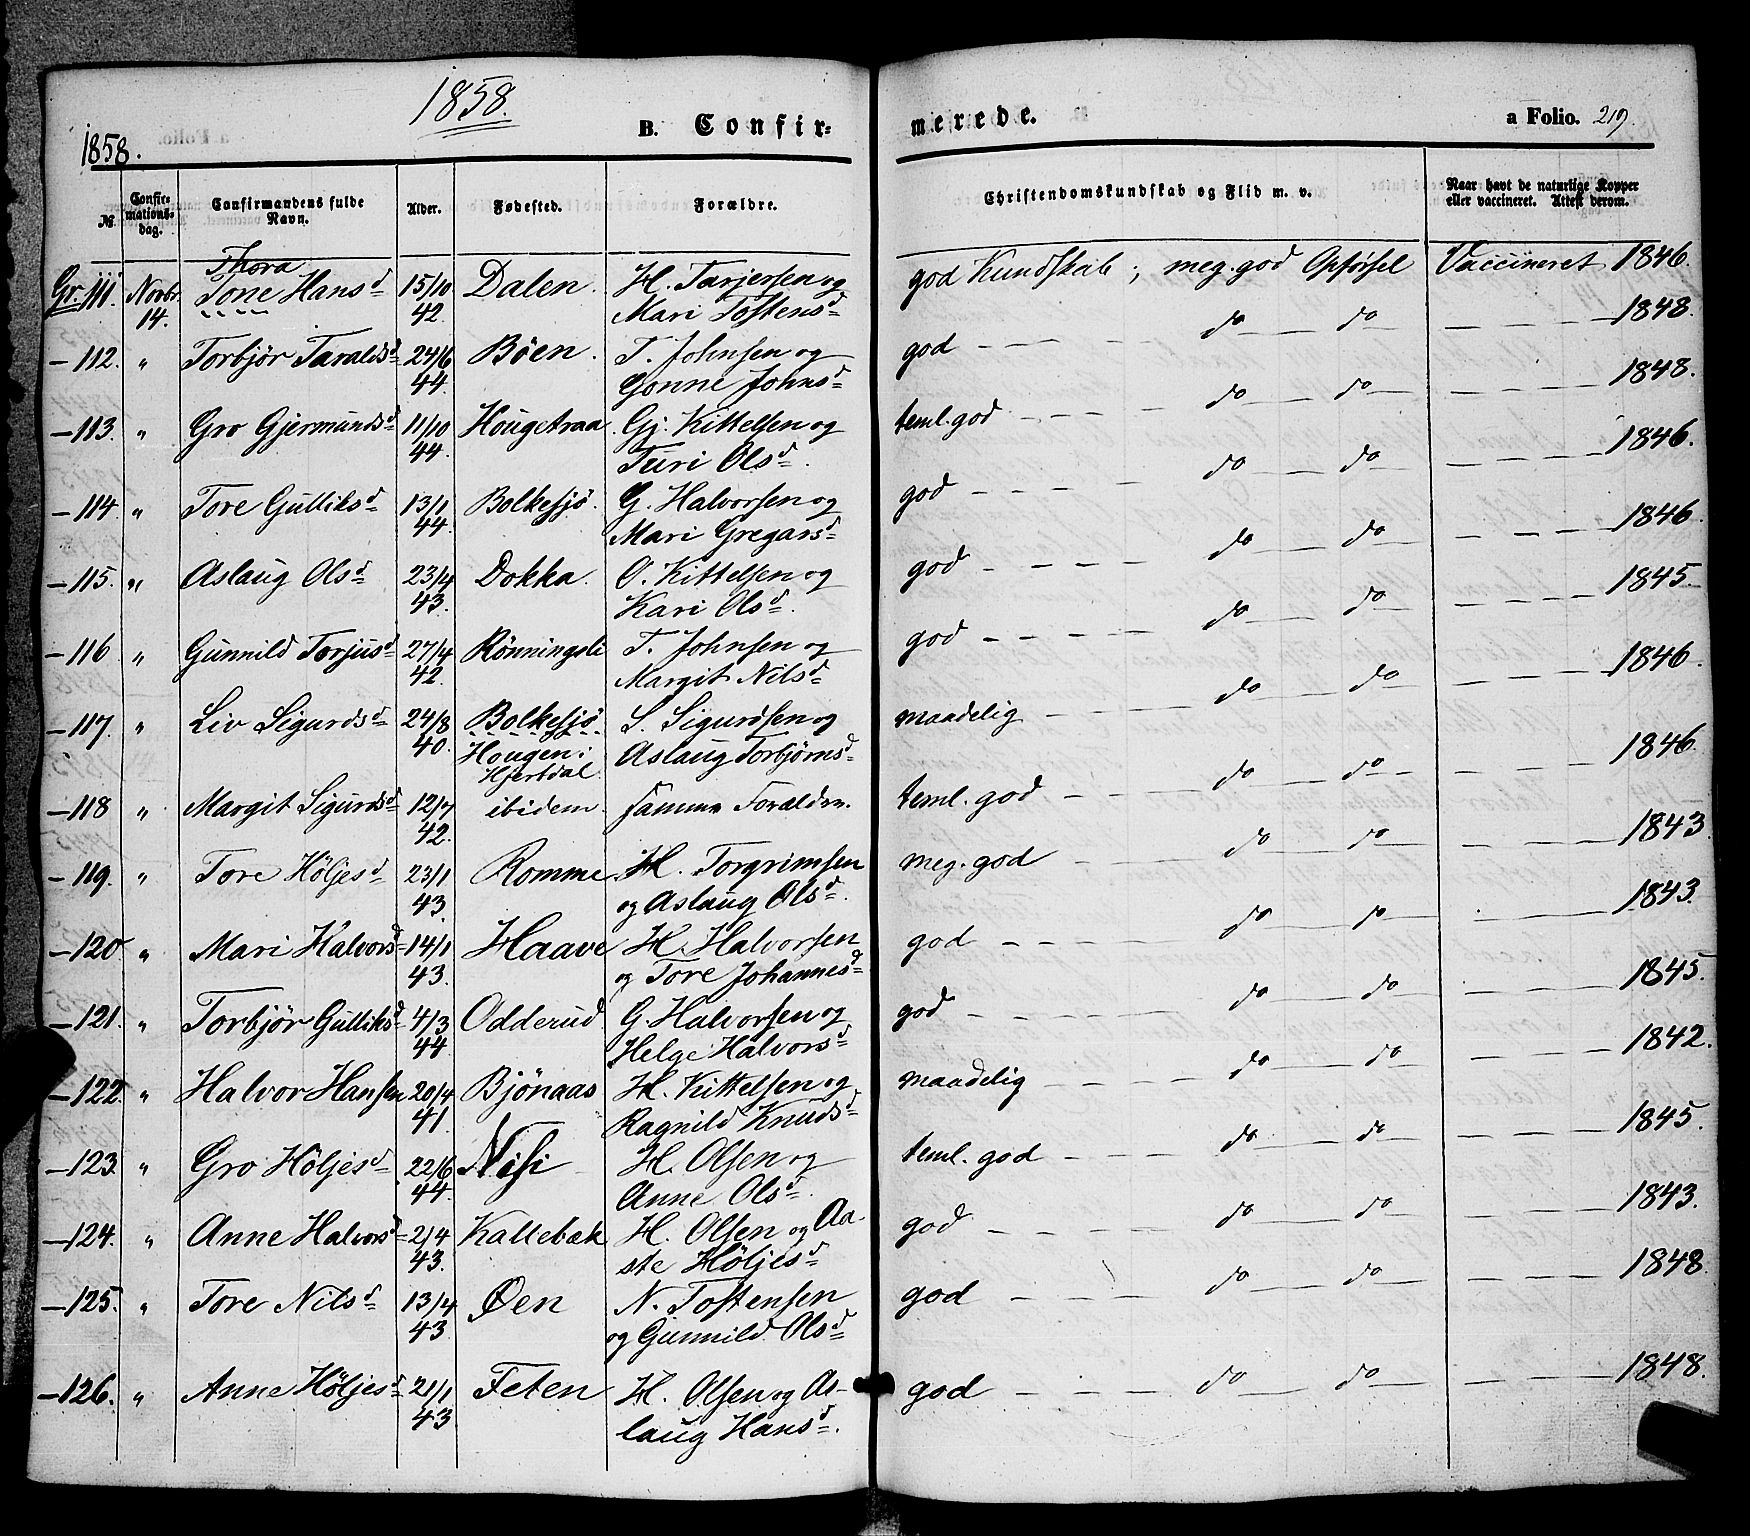 1858.
1858.
B. Confir- merede. a Folio. 219.
№ Confirmations-dag. Confirmandens fulde Navn. Alder. Fødested. Forældre. Christendomskundskab og Flid m. v. Naar havt de naturlige Kopper eller vaccineret. Attest derom.
Thora
Gr. 111. Novbr. Tone Hansd 15/10 Dalen. H. Tarjersen og god Kundskab; meg. god Opførsel Vaccineret 1846.
14. 42. Mari Tostensd
— 112. " Torbjör Taraldsd 24/6 Böen. T. Johnsen og god — — do — do — — — 1848.
44. Gonne Johnsd
— 113. " Gro Gjermundsd 11/10 Hougetraa Gj. Kittelsen og teml. god — — do — do — — — 1848.
44. Turi Olsd.
— 114. " Tore Gulliksd 13/1 Bolkesjö. G. Halvorsen og god — — do — do — — — 1846.
44. Mari Gregarsd
— 115. " Aslaug Olsd 23/4 Dokka. O. Kittelsen og god — — do — do — — — 1846.
43. Kari Olsd.
— 116 " Gunnild Torjusd 27/4 Rönningsli T. Johnsen og god — — do — do — — — 1845.
42. Margit Nilsd
— 117. " Liv Sigurdsd 24/8 Bolkesjö S. Sigurdsen og maadelig — — do — do — — — 1846.
40. Hougen i Aslaug Torbjörnsd
Hjertdal.
— 118 " Margit Sigurdsd 12/7 ibidem. samme Forældre. teml. god — — do — do — — — 1846.
42.
— 119. " Tore Höljesd 23/1 Romme H. Torgrimsen meg. god — — do — do — — — 1843.
43. og Aslaug Olsd.
— 120 " Mari Halvorsd 14/1 Haave H. Halvorsen god — — do — do — — — 1843.
43. og Tore Johannesd
— 121. " Torbjör Gulliksd 4/3 Odderud G. Halvorsen og god — — do — do — — — 1845.
44. Helge Halvorsd
— 122. " Halvor Hansen 20/4 Bjönaas H. Kittelsen og maadelig — — do — do — — — 1842.
41. Ragnild Knudsd
— 123. " Gro Höljesd 22/6 Nisi H. Olsen og teml. god — — do — do — — — 1845.
44. Anne Olsd.
— 124. " Anne Halvorsd 2/4 Kallebæk H. Olsen og Aa- god — — do — do — — — 1843.
43. ste Höljesd
— 125. " Tore Nilsd 13/4 Øen N. Tostensen god — — do — do — — — 1848.
43 og Gunnild Olsd
— 126. " Anne Höljesd 21/1 Feten H. Olsen og As- god — — do — do — — — 1848.
43 laug Hansd.